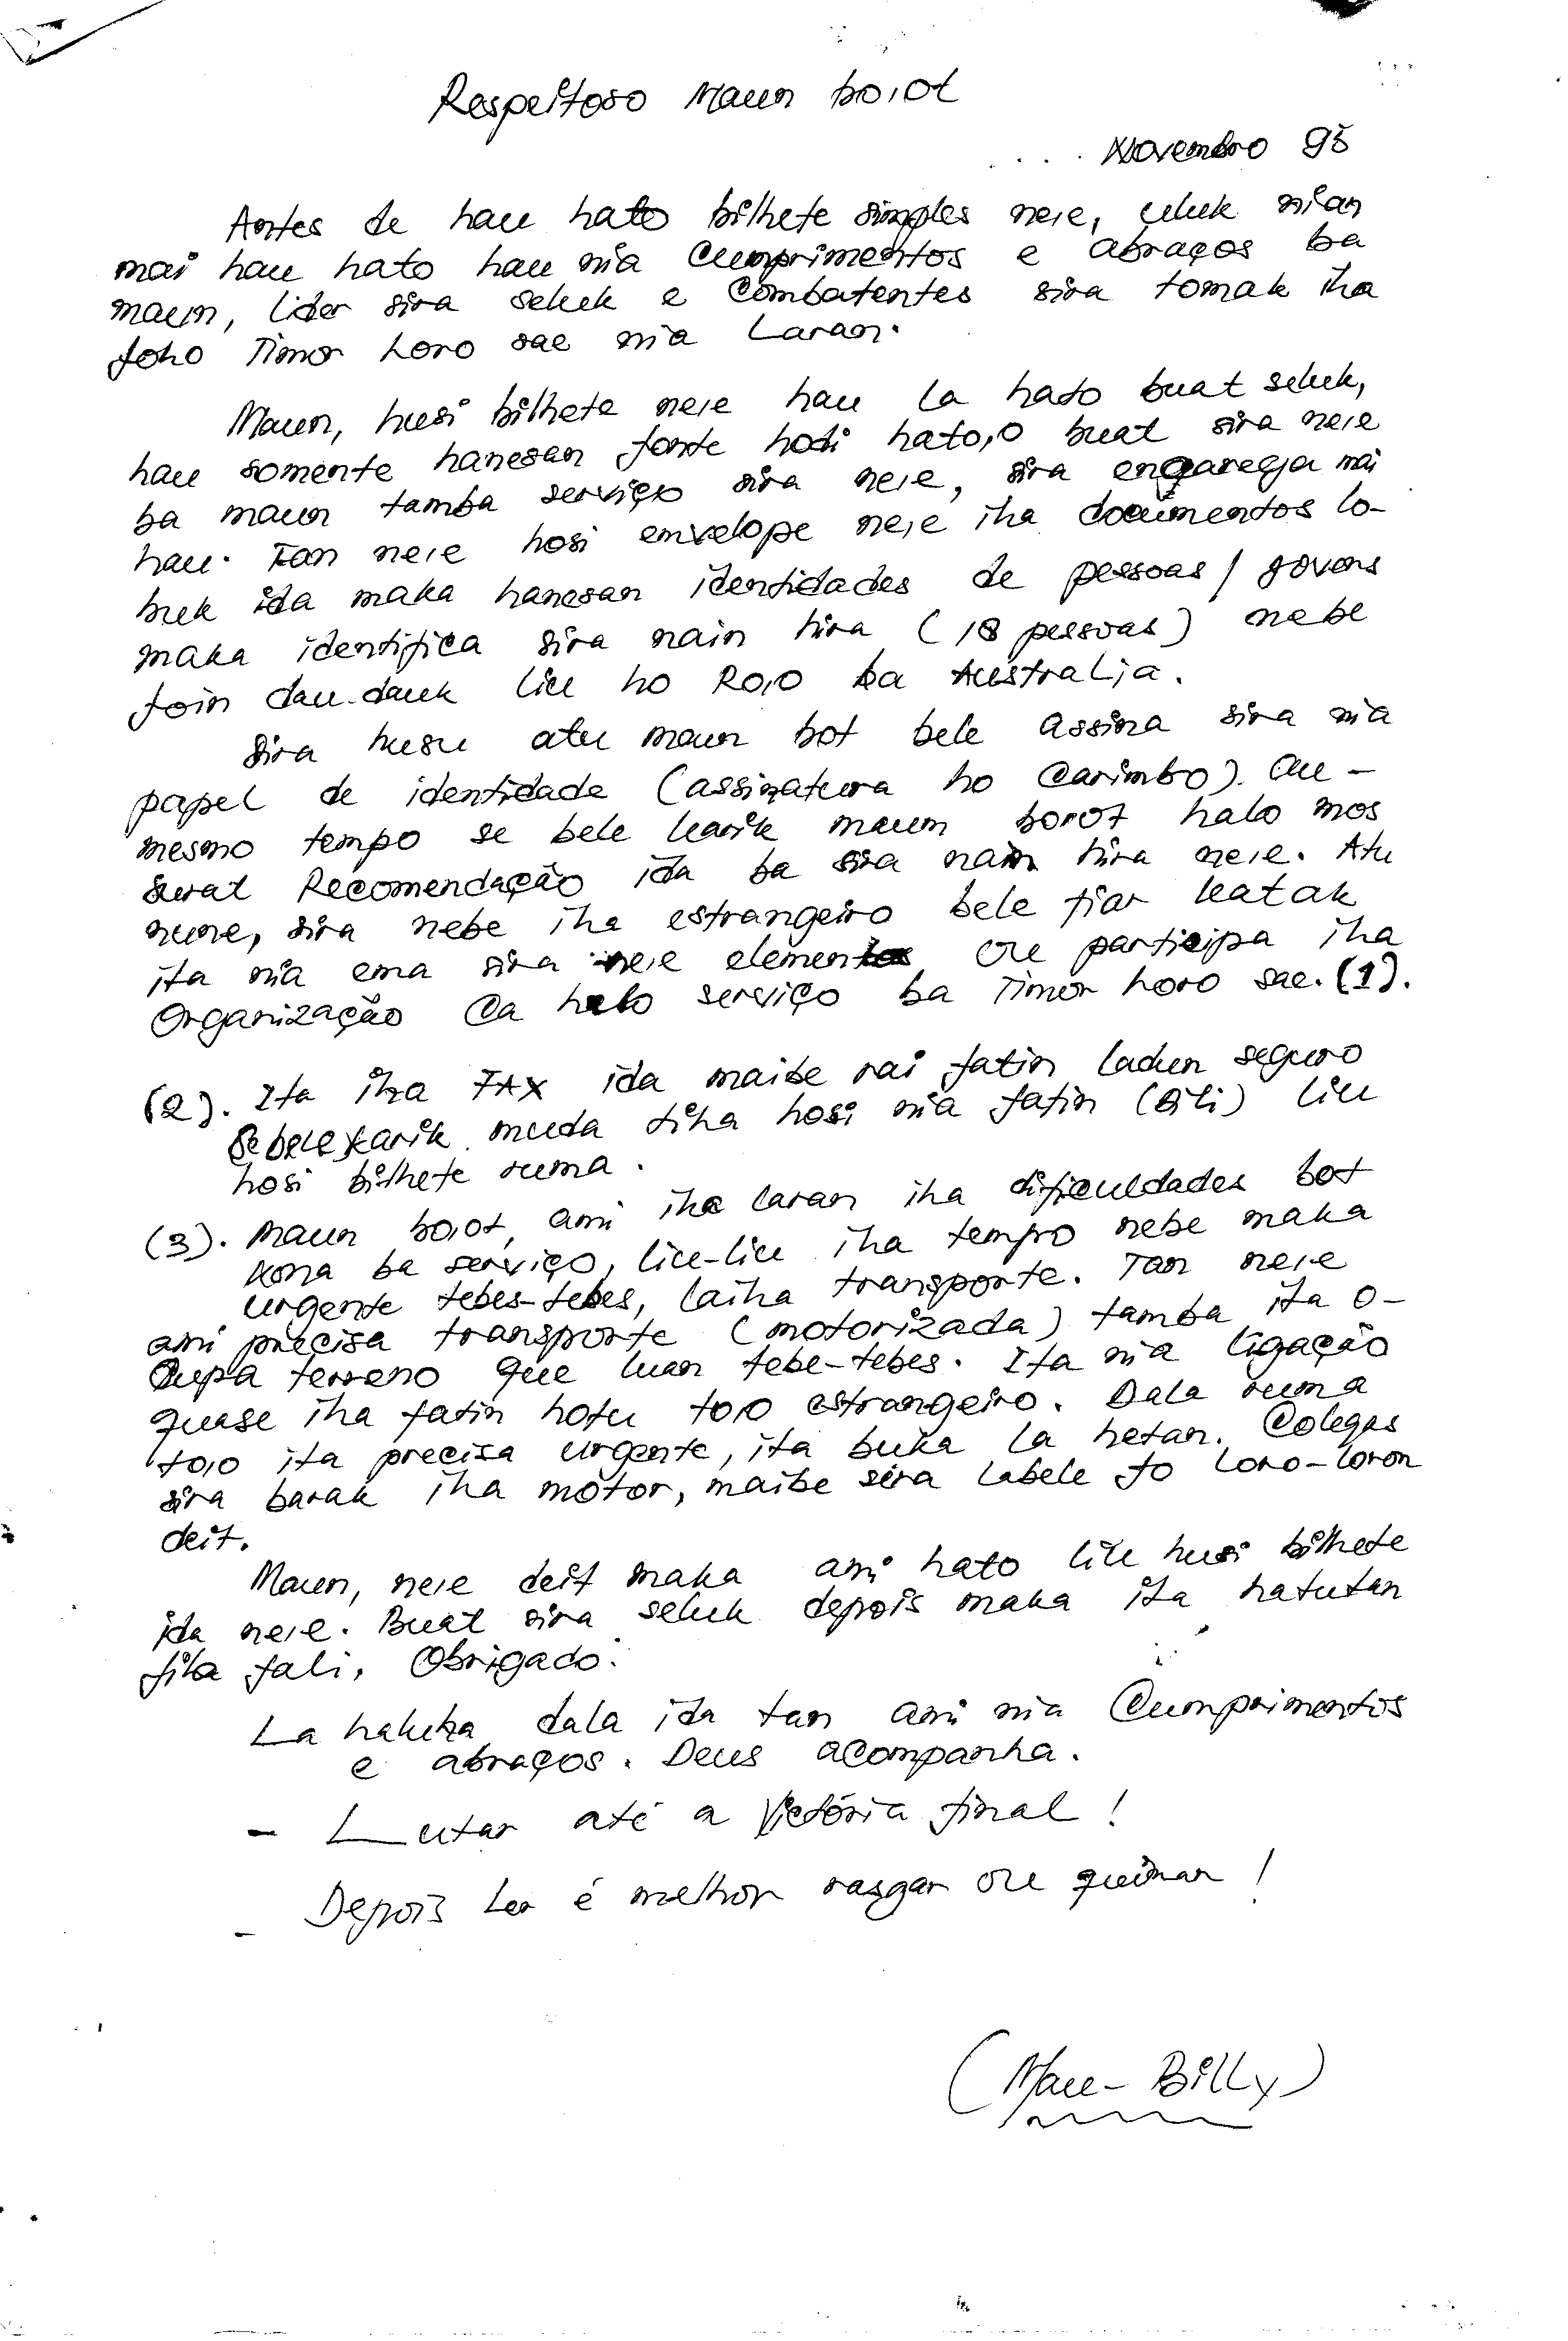 Respeitoso Maun bo,ot
.... Novembro 95
Antes de hau hato bilhete simples ne,e, uluk nian
mai hau hato hau nia Cumprimentos e abraços ba
maun, lider sira seluk e Combatentes sira tomak iha
foho Timor Loro sae nia Laran.
Maun, husi bilhete ne,e hau la hato buat seluk,
hau somente hanesan fonte hodi hato,o buat sira ne,e
ba maun tamba serviço sira ne,e, sira engarega mai
hau. Tan ne,e hosi envelope ne,e iha documentos lo-
buk ida maka hanesan identidades de pessoas / jovens
maka identifica sira nain hira (18 pessoas) nebe
foin dau-dauk liu ho Ro,o ba Australia.
Sira husu atu maun bot bele assina sira nia
papel de identidade (assinatura ho Carimbo). Au-
mesmo tempo se bele karik maun boro7 halo mos
surat Recomendação ida ba sira nain hira ne,e. Atu
nune, sira nebe iha estrangeiro bele fiar katak
ita nia ema sira ne,e elementos ou participa iha
Organização Ca halo serviço ba Timor Loro sae. (1).
(2). Ita iha FAX ida maibe rai fatin ladun seguro
Se bele karik muda tiha hosi nia fatin (Dili) liu
hosi bilhete ruma.
(3). Maun bo,ot, ami iha laran iha dificuldades bot
kona ba serviço, liu-liu iha tempo nebe maka
urgente tebes-tebes, laiha transporte. Tan ne,e
ami precisa transporte (motorizada) tamba ita o-
cupa terreno que luan tebe-tebes. Ita nia ligação
quase iha fatin hotu to,o estrangeiro. Dala ruma
to,o ita precisa urgente, ita buka la hetan. Colegas
sira barak iha motor, maibe sira labele fo loro-loron
deit.
Maun, ne,e deit maka ami hato liu husi bilhete
ida ne,e. Buat sira seluk depois maka ita hatutan
fila fali. Obrigado.
La haluha dala ida tan ami nia Cumprimentos
e abraços. Deus acompanha.
- Lutar até a Victória final !
- Depois Ler é melhor rasgar ou queimar !
(Mau-Billy)